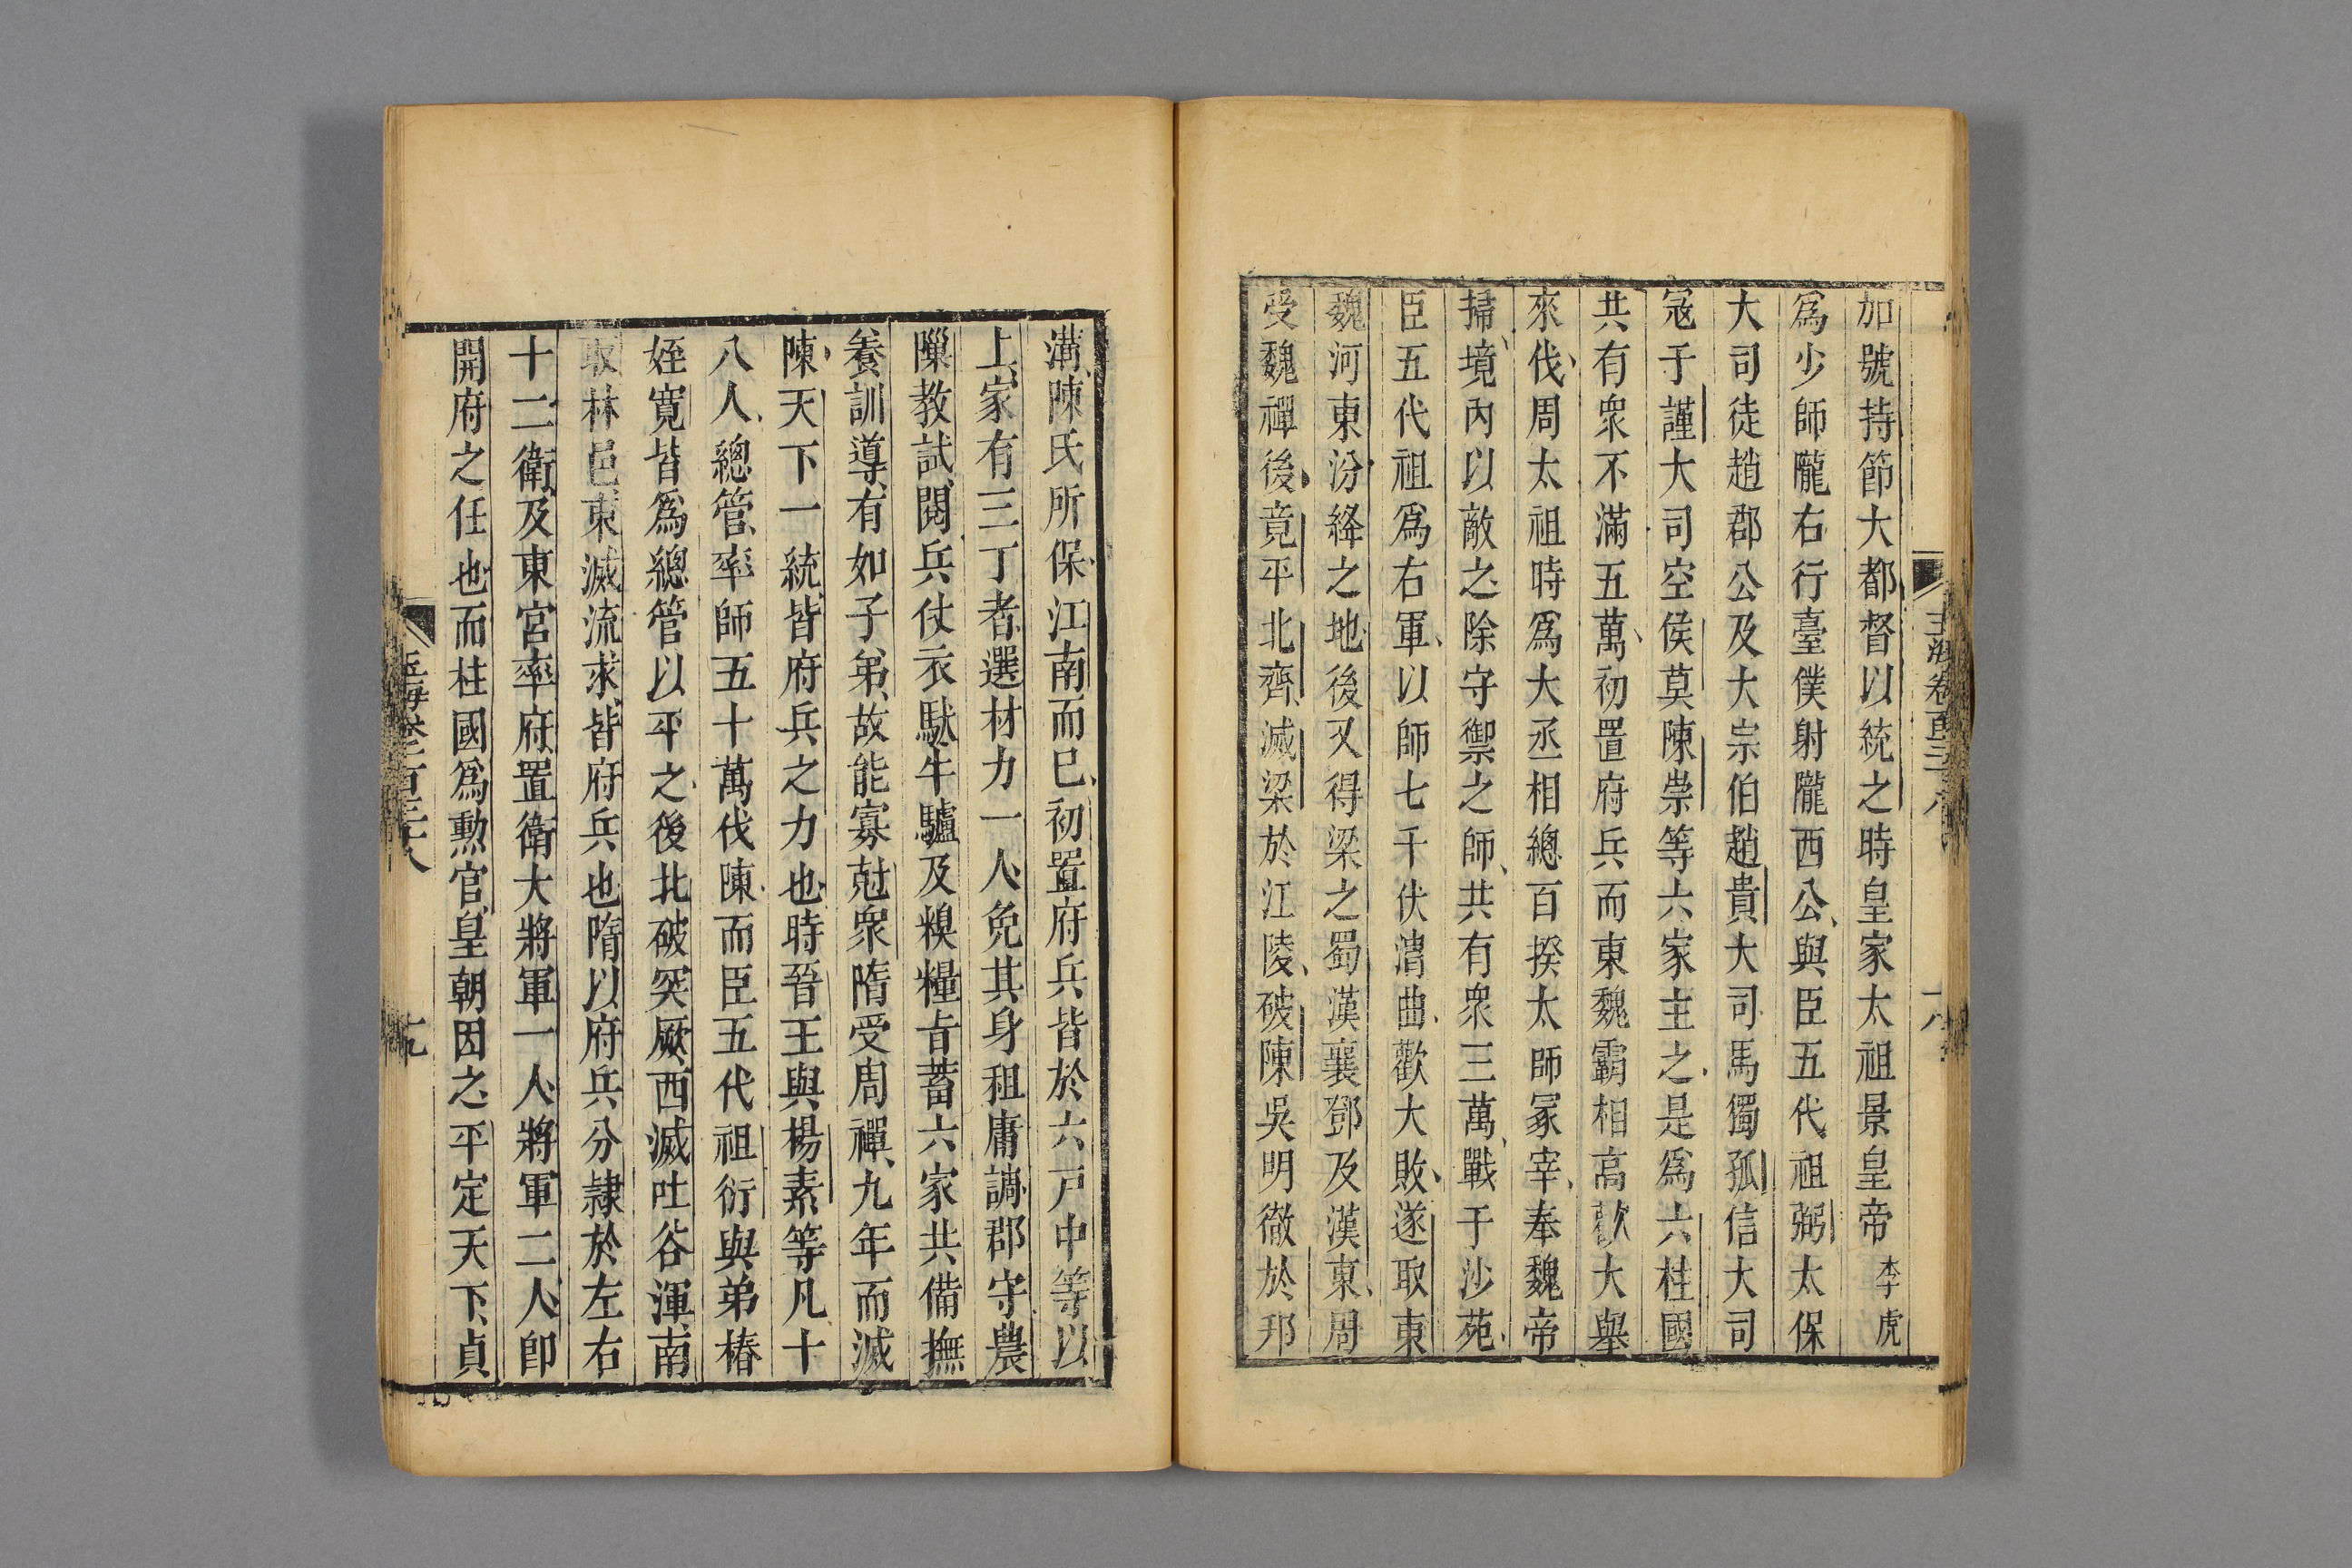 加號持節大都督以統之時皇家太祖景皇帝李虎
爲少師隴右行臺僕射隴西公與臣五代祖弼太保
大司徒趙郡公及大宗伯趙貴大司馬獨孤信大司
寇于謹大司空侯莫陳崇等六家主之是爲六柱國
共有衆不滿五萬初置府兵而東魏霸相高歡大舉
來伐周太祖時爲大丞相總百揆太師冢宰奉魏帝
掃境內以敵之除守禦之師共有衆三萬戰于沙苑
臣五代祖爲右軍以師七千伏渭曲歡大敗遂取東
魏河東汾絳之地後又得梁之蜀漢襄鄧及漢東周
受魏禪後竟平北齊滅梁於江陵破陳吳明徹於邳
溝陳氏所保江南而已初置府兵皆於六戸中等以
上家有三丁者選材力一人免其身租庸調郡守農
隟教試閱兵仗衣馱牛驢及糗糧旨蓄六家共備撫
養訓導有如子弟故能寡尅衆隋受周禪九年而滅
陳天下一統皆府兵之力也時晉王與楊素等凡十
八人總管率師五十萬伐陳而臣五代祖衍與弟椿
姪寛皆爲總管以平之後北破突厥西滅吐谷渾南
取林邑東滅流求皆府兵也隋以府兵分隷於左右
十二衛及東宮率府置衛大將軍一人將軍二人卽
開府之任也而柱國爲勲官皇朝因之平定天下貞